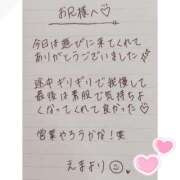 お兄様へ♡
今日は遊びに来てくれて
ありがとうございました
途中ギリギリで我慢して
最後は素股で気持ちよ
くなってくれて良かった♡
営業やろうかな！笑
えまより☺